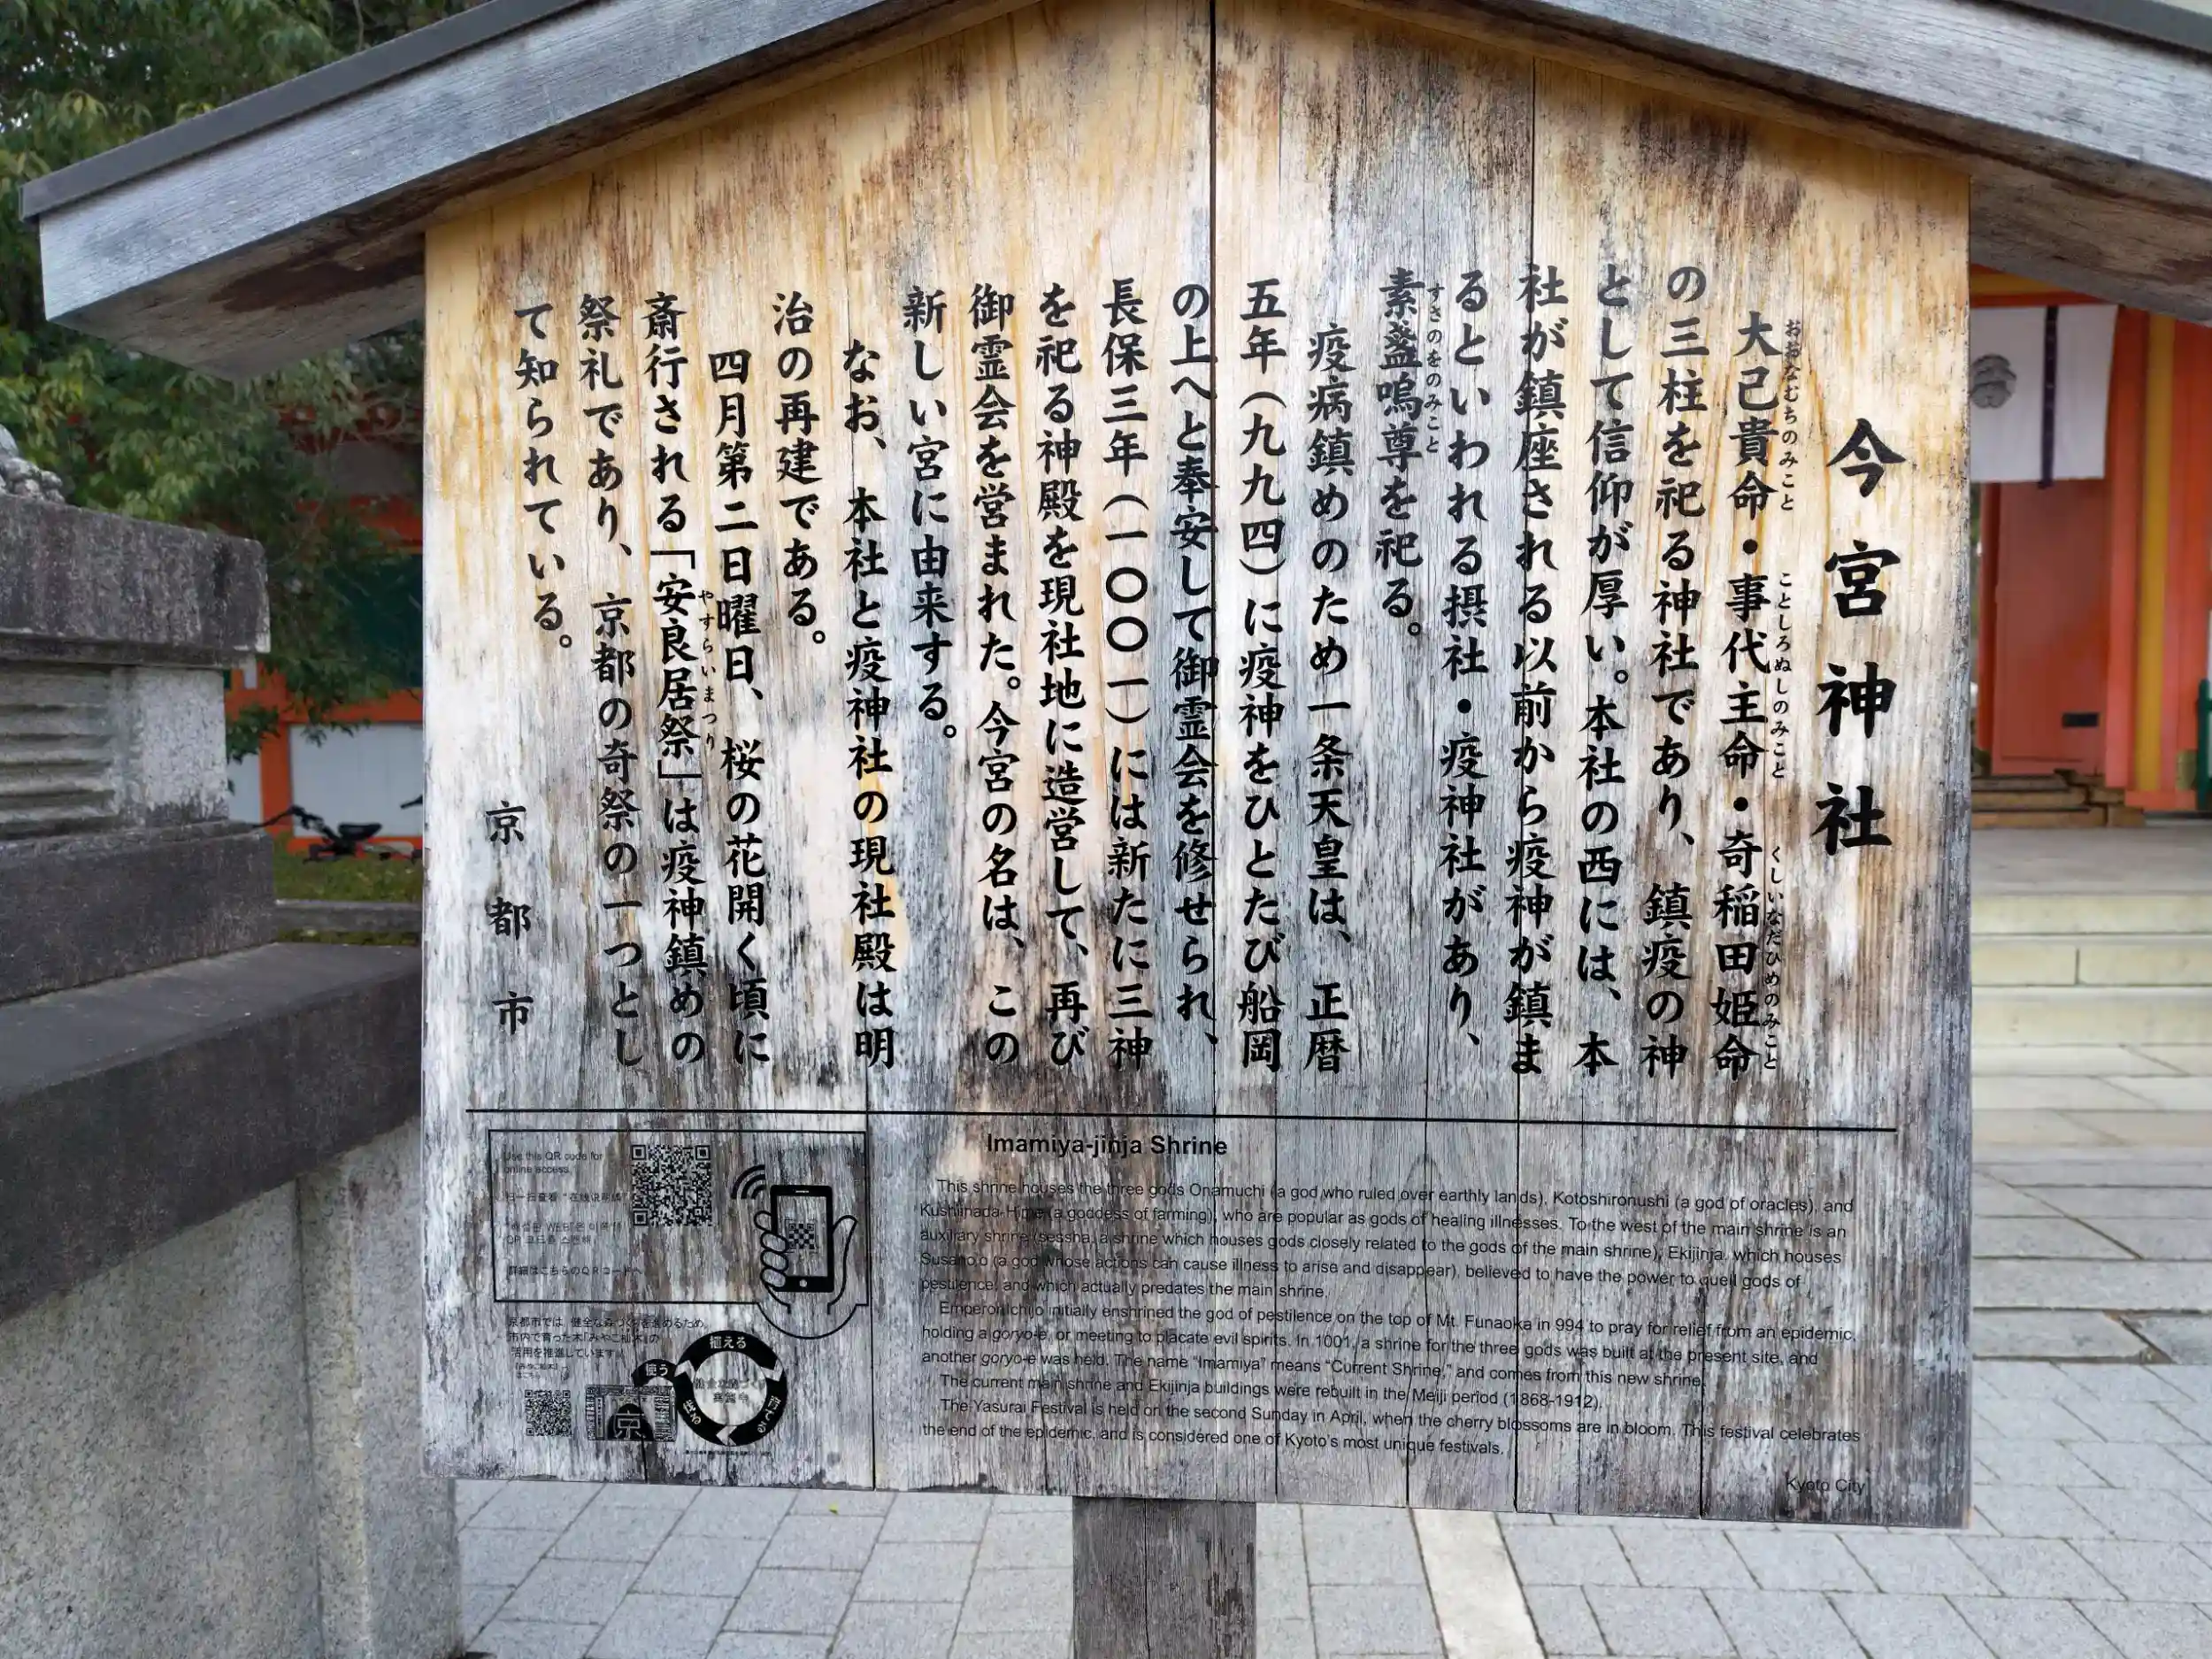 今宮神社
大己貴命・事代主命・奇稲田姫命
おおなむちのみこと
ことしろぬしのみこと
くしいなだひめのみこと
の三柱を祀る神社であり、鎮疫の神
として信仰が厚い。本社の西には、本
社が鎮座される以前から疫神が鎮ま
るといわれる摂社・疫神社があり、
素盞嗚尊を祀る。
すさのをのみこと
疫病鎮めのため一条天皇は、正暦
五年（九九四）に疫神をひとたび船岡
の上へと奉安して御霊会を修せられ、
長保三年（一〇〇一）には新たに三神
を祀る神殿を現社地に造営して、再び
御霊会を営まれた。今宮の名は、この
新しい宮に由来する。
なお、本社と疫神社の現社殿は明
治の再建である。
四月第二日曜日、桜の花開く頃に
斎行される「安良居祭」は疫神鎮めの
やすらいまつり
祭礼であり、京都の奇祭の一つとし
て知られている。
京都市
Use this QR code for
online access.
扫一扫查看“在线说明牌”
QR 코드를 스캔해
詳細はこちらのQRコードへ
京都市では、健全な森づくりを進めるため、
市内で育った木「みやこ杣木」の
活用を推進しています。
植える
育てる
伐る
使う
京
Imamiya-jinja Shrine
This shrine houses the three gods Onamuchi (a god who ruled over earthly lands), Kotoshironushi (a god of oracles), and
Kushiinada-Hime (a goddess of farming), who are popular as gods of healing illnesses. To the west of the main shrine is an
auxiliary shrine (sessha, a shrine which houses gods closely related to the gods of the main shrine), Ekijinja, which houses
Susano,o (a god whose actions can cause illness to arise and disappear), believed to have the power to quell gods of
pestilence, and which actually predates the main shrine.
Emperor Ichijo initially enshrined the god of pestilence on the top of Mt. Funaoka in 994 to pray for relief from an epidemic,
holding a goryo-e, or meeting to placate evil spirits. In 1001, a shrine for the three gods was built at the present site, and
another goryo-e was held. The name “Imamiya” means “Current Shrine,” and comes from this new shrine.
The current main shrine and Ekijinja buildings were rebuilt in the Meiji period (1868-1912).
The Yasurai Festival is held on the second Sunday in April, when the cherry blossoms are in bloom. This festival celebrates
the end of the epidemic, and is considered one of Kyoto’s most unique festivals.
Kyoto City